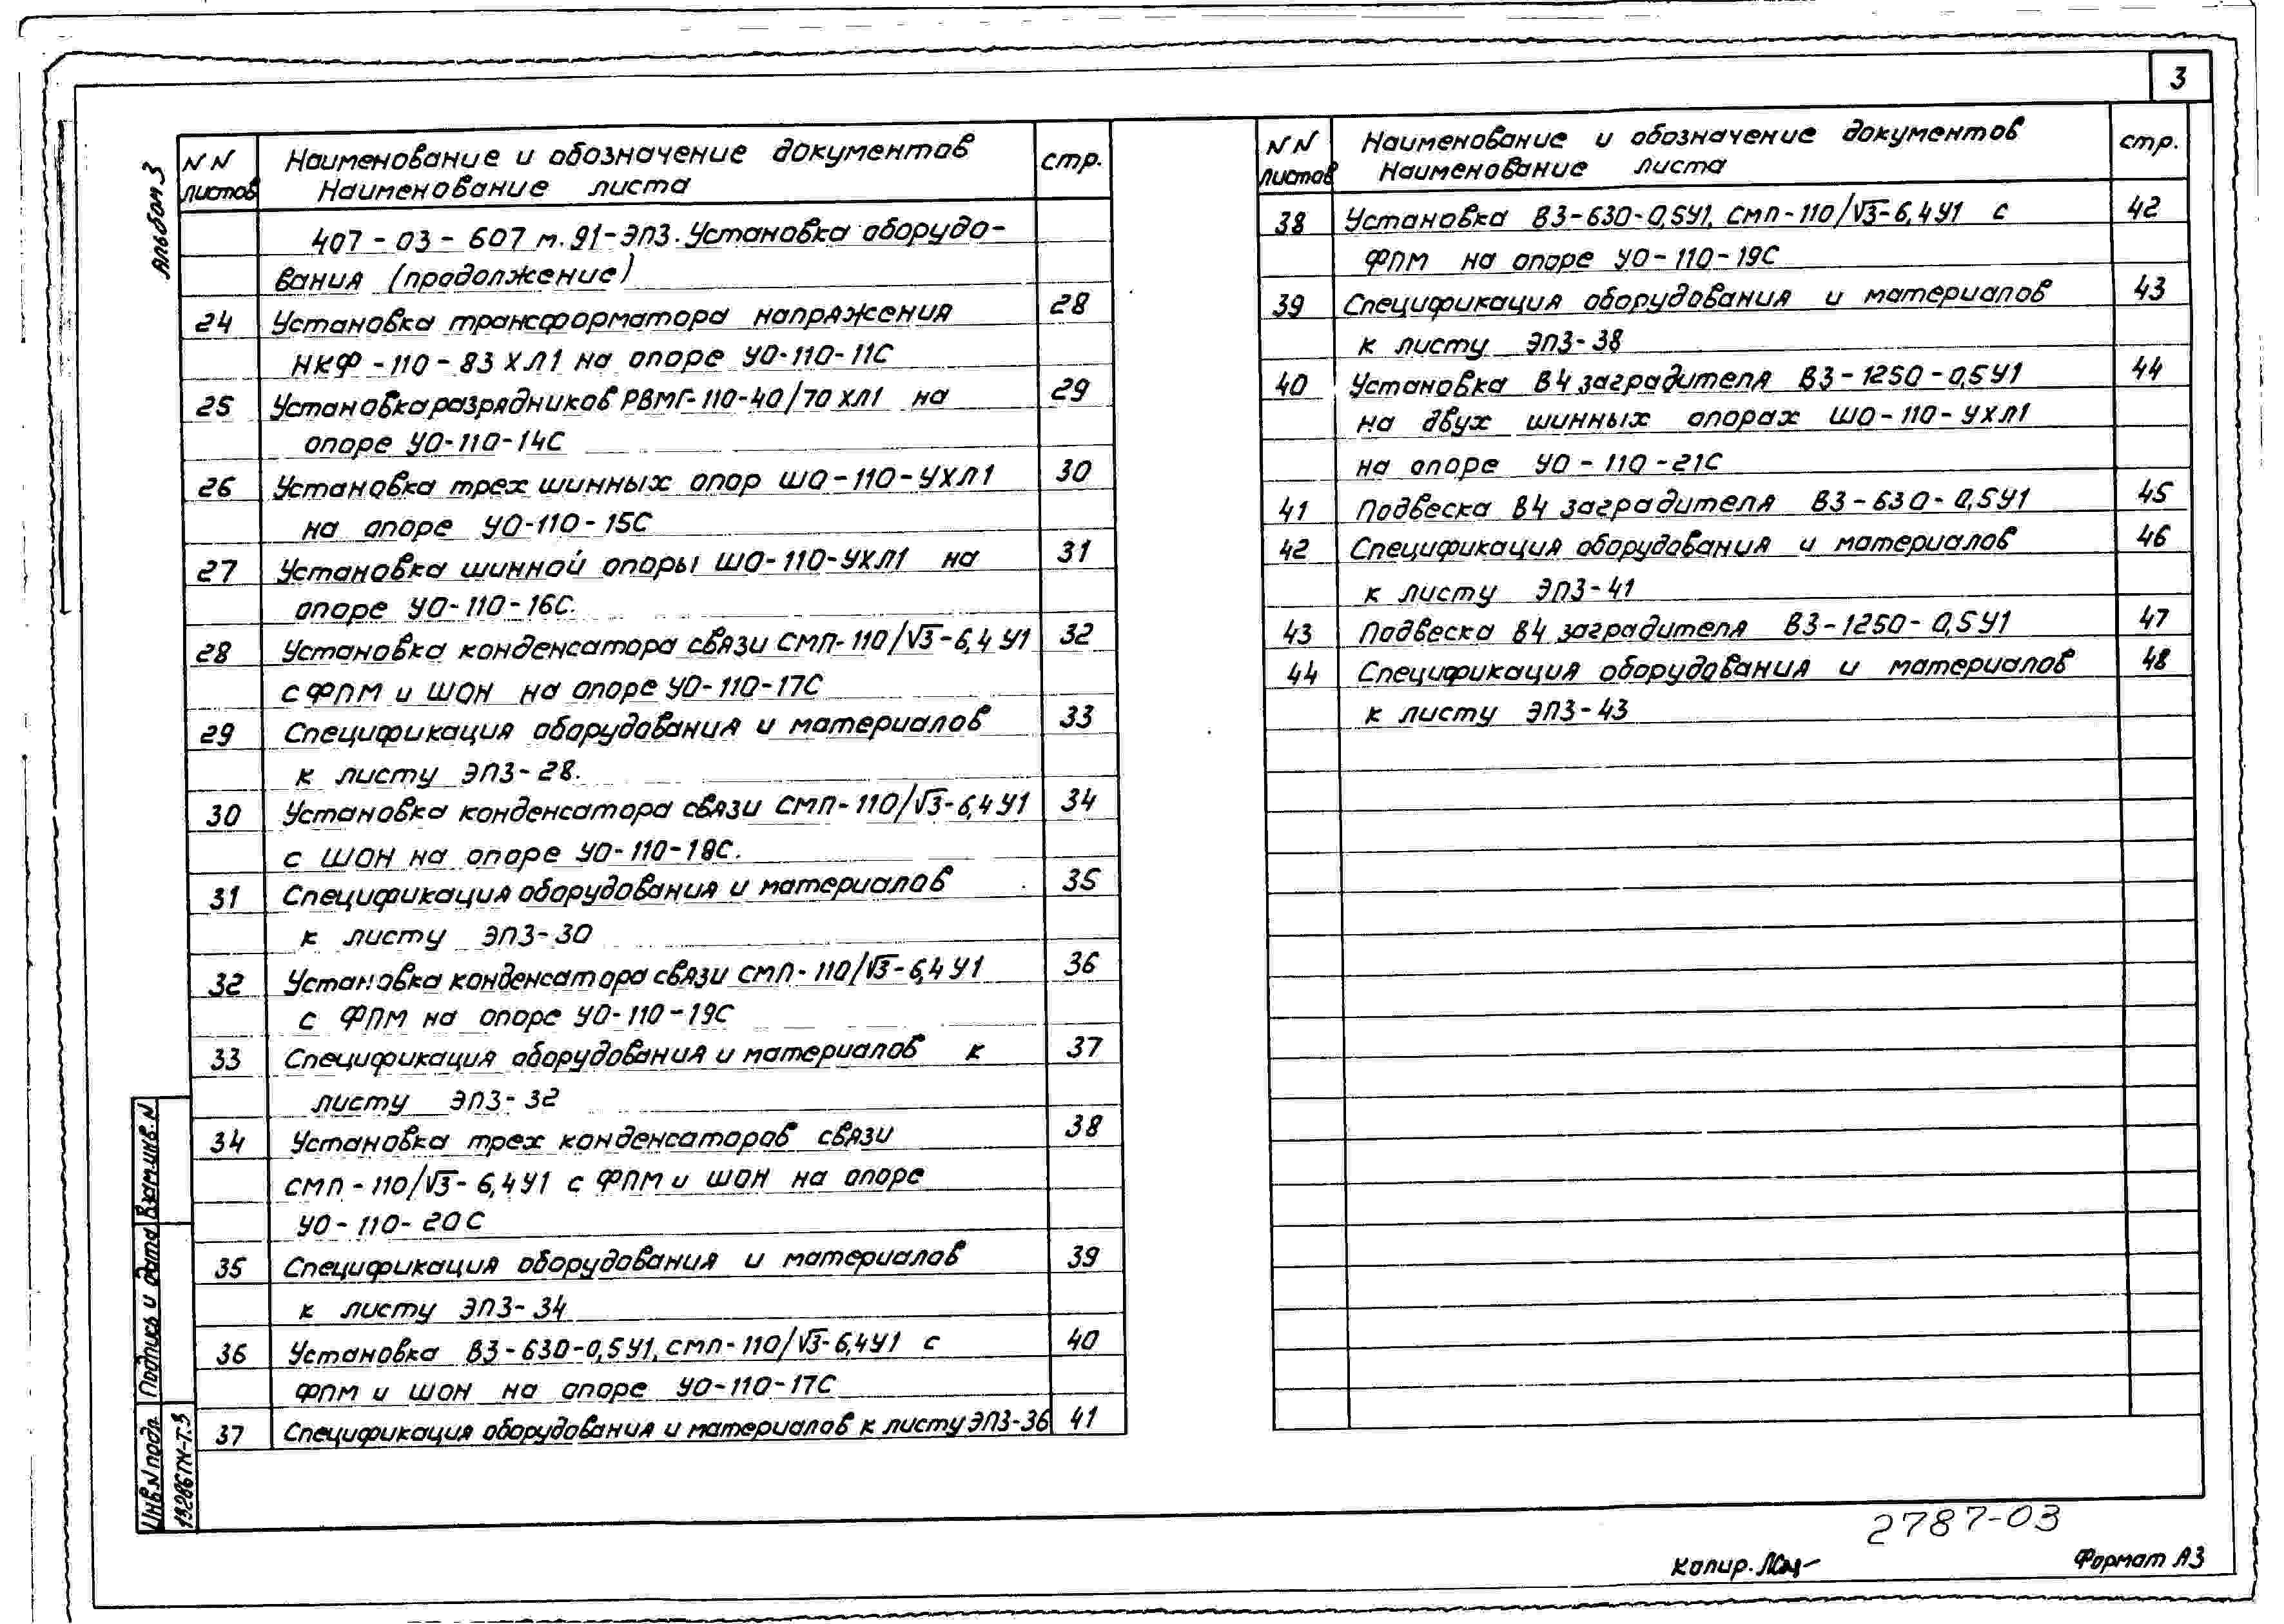 3
Альбом 3
NN листов
Наименование и обозначение документов
Наименование листа
стр.
407-03-607м.91-ЭП3. Установка оборудо-
вания (продолжение)
24 Установка трансформатора напряжения 28
НКФ-110-83ХЛ1 на опоре УО-110-11С
25 Установка разрядников РВМГ-110-40/70ХЛ1 на 29
опоре УО-110-14С
26 Установка трех шинных опор ШО-110-УХЛ1 30
на опоре УО-110-15С
27 Установка шинной опоры ШО-110-УХЛ1 на 31
опоре УО-110-16С.
28 Установка конденсатора связи СМП-110/√3-6,4У1 32
с ФПМ и ШОН на опоре УО-110-17С
29 Спецификация оборудования и материалов 33
к листу ЭП3-28.
30 Установка конденсатора связи СМП-110/√3-6,4У1 34
с ШОН на опоре УО-110-18С.
31 Спецификация оборудования и материалов 35
к листу ЭП3-30
32 Установка конденсатора связи СМП-110/√3-6,4У1 36
с ФПМ на опоре УО-110-19С
33 Спецификация оборудования и материалов к 37
листу ЭП3-32
34 Установка трех конденсаторов связи 38
СМП-110/√3-6,4У1 с ФПМ и ШОН на опоре
УО-110-20С
35 Спецификация оборудования и материалов 39
к листу ЭП3-34
36 Установка ВЗ-630-0,5У1, СМП-110/√3-6,4У1 с 40
ФПМ и ШОН на опоре УО-110-17С
37 Спецификация оборудования и материалов к листу ЭП3-36 41
NN листов
Наименование и обозначение документов
Наименование листа
стр.
38 Установка ВЗ-630-0,5У1, СМП-110/√3-6,4У1 с 42
ФПМ на опоре УО-110-19С
39 Спецификация оборудования и материалов 43
к листу ЭП3-38
40 Установка ВЧ заградителя ВЗ-1250-0,5У1 44
на двух шинных опорах ШО-110-УХЛ1
на опоре УО-110-21С
41 Подвеска ВЧ заградителя ВЗ-630-0,5У1 45
42 Спецификация оборудования и материалов 46
к листу ЭП3-41
43 Подвеска ВЧ заградителя ВЗ-1250-0,5У1 47
44 Спецификация оборудования и материалов 48
к листу ЭП3-43
Взам.инв.N
Подпись и дата
Инв.N подл.
13286ТМ-Т.3
2787-03
Копир.
Формат А3